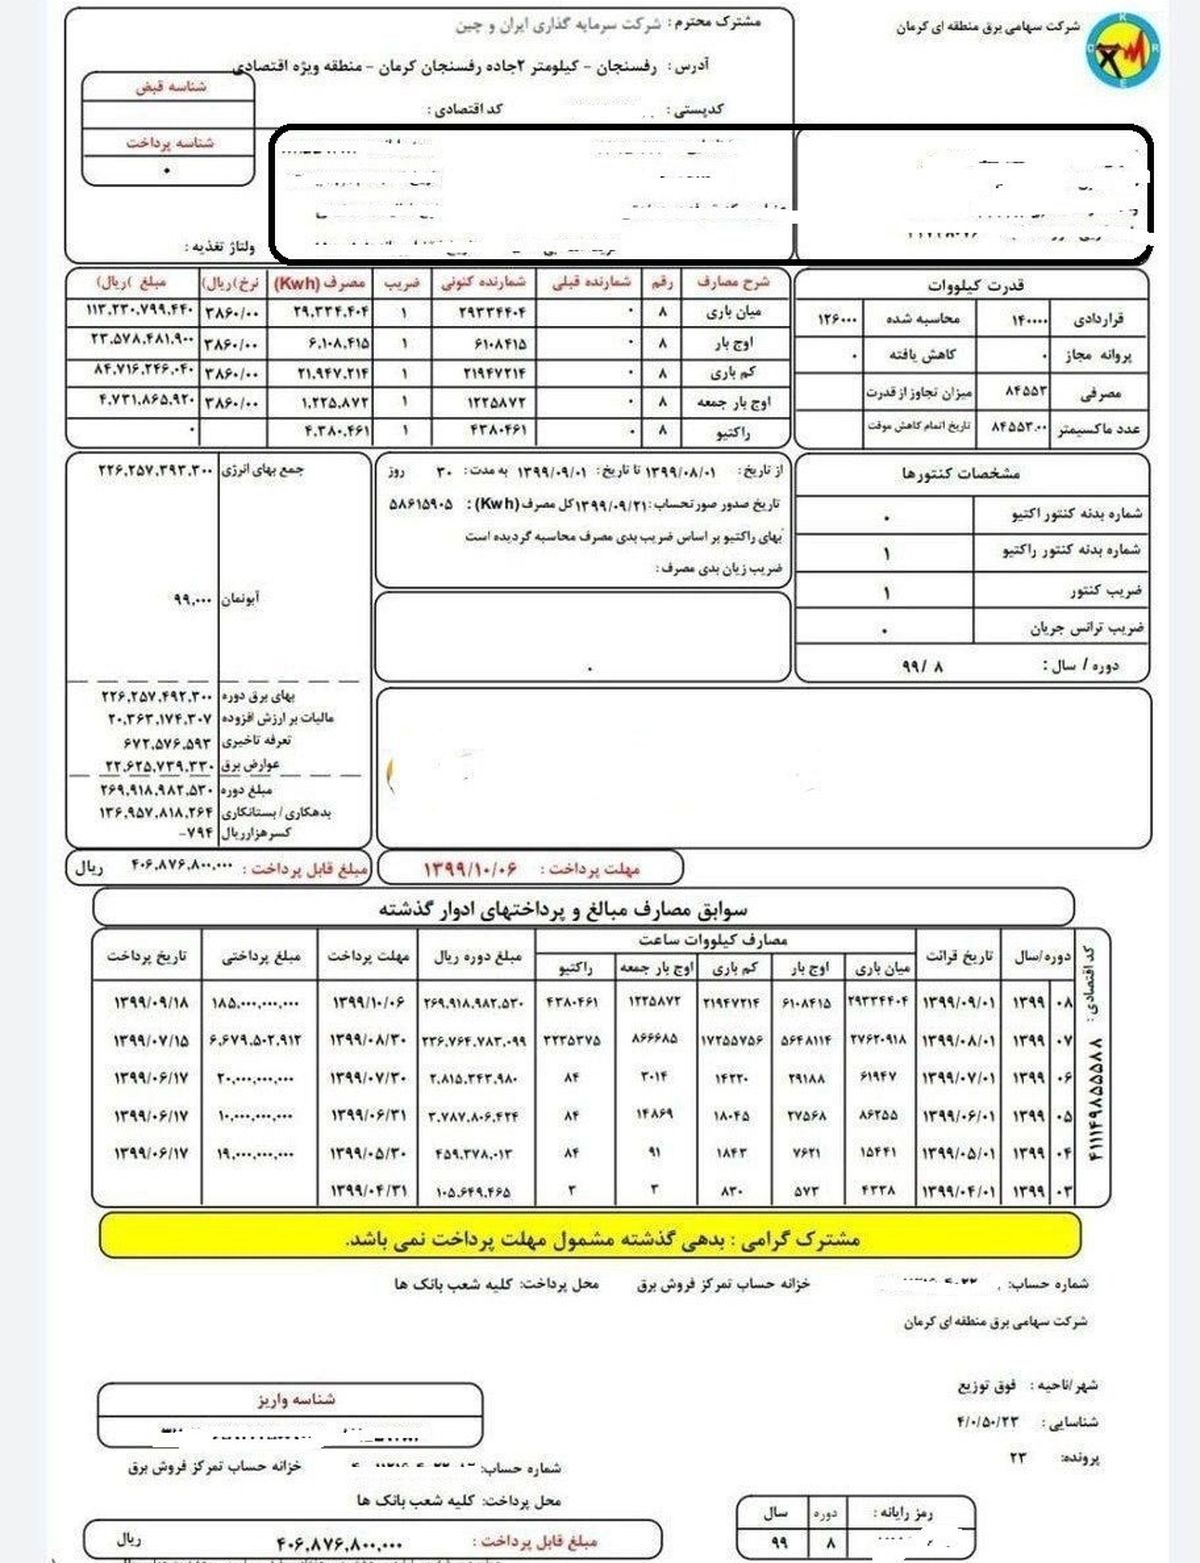 شرکت سهامی برق منطقه ای کرمان
مشترک محترم : شرکت سرمایه گذاری ایران و چین
آدرس : رفسنجان - کیلومتر ۲جاده رفسنجان کرمان - منطقه ویژه اقتصادی
کدپستی : کد اقتصادی :
شناسه قبض
شناسه پرداخت
۰
ولتاژ تغذیه :
قدرت کیلووات
قراردادی ۱۴۰۰۰۰ محاسبه شده ۱۲۶۰۰۰
پروانه مجاز ۰ کاهش یافته ۰
مصرفی ۸۴۵۵۳ میزان تجاوز از قدرت
عدد ماکسیمتر ۸۴۵۵۳.۰۰ تاریخ اتمام کاهش موقت
شرح مصارف رقم شمارنده قبلی شمارنده کنونی ضریب مصرف (Kwh) نرخ(ریال) مبلغ (ریال)
میان باری ۸ ۰ ۲۹۳۳۴۴۰۴ ۱ ۲۹,۳۳۴,۴۰۴ ۳۸۶۰/۰۰ ۱۱۳,۲۳۰,۷۹۹,۴۴۰
اوج بار ۸ ۰ ۶۱۰۸۴۱۵ ۱ ۶,۱۰۸,۴۱۵ ۳۸۶۰/۰۰ ۲۳,۵۷۸,۴۸۱,۹۰۰
کم باری ۸ ۰ ۲۱۹۴۷۲۱۴ ۱ ۲۱,۹۴۷,۲۱۴ ۳۸۶۰/۰۰ ۸۴,۷۱۶,۲۴۶,۰۴۰
اوج بار جمعه ۸ ۰ ۱۲۲۵۸۷۲ ۱ ۱,۲۲۵,۸۷۲ ۳۸۶۰/۰۰ ۴,۷۳۱,۸۶۵,۹۲۰
راکتیو ۸ ۰ ۴۳۸۰۴۶۱ ۱ ۴,۳۸۰,۴۶۱ ۰
مشخصات کنتورها
شماره بدنه کنتور اکتیو ۰
شماره بدنه کنتور راکتیو ۱
ضریب کنتور ۱
ضریب ترانس جریان ۰
دوره / سال : ۸ /۹۹
از تاریخ : ۱۳۹۹/۰۸/۰۱ تا تاریخ : ۱۳۹۹/۰۹/۰۱ به مدت : ۳۰ روز
تاریخ صدور صورتحساب :۱۳۹۹/۰۹/۲۱کل مصرف (Kwh) : ۵۸۶۱۵۹۰۵
بهای راکتیو بر اساس ضریب بدی مصرف محاسبه گردیده است
ضریب زیان بدی مصرف :
۰
جمع بهای انرژی ۲۲۶,۲۵۷,۳۹۳,۳۰۰
آبونمان ۹۹,۰۰۰
بهای برق دوره ۲۲۶,۲۵۷,۴۹۲,۳۰۰
مالیات بر ارزش افزوده ۲۰,۳۶۳,۱۷۴,۳۰۷
تعرفه تاخیری ۶۷۲,۵۷۶,۵۹۳
عوارض برق ۲۲,۶۲۵,۷۳۹,۳۳۰
مبلغ دوره ۲۶۹,۹۱۸,۹۸۲,۵۳۰
بدهکاری / بستانکاری ۱۳۶,۹۵۷,۸۱۸,۲۶۴
کسرهزارریال ۷۹۴-
مهلت پرداخت : ۱۳۹۹/۱۰/۰۶
مبلغ قابل پرداخت : ۴۰۶,۸۷۶,۸۰۰,۰۰۰ ریال
سوابق مصارف مبالغ و پرداختهای ادوار گذشته
کد اقتصادی : ۴۱۱۱۴۹۸۵۵۵۸۸
مصارف کیلووات ساعت
دوره/سال تاریخ قرائت میان باری اوج بار کم باری اوج بار جمعه راکتیو مبلغ دوره ریال مهلت پرداخت مبلغ پرداختی تاریخ پرداخت
۰۸ ۱۳۹۹ ۱۳۹۹/۰۹/۰۱ ۲۹۳۳۴۴۰۴ ۶۱۰۸۴۱۵ ۲۱۹۴۷۲۱۴ ۱۲۲۵۸۷۲ ۴۳۸۰۴۶۱ ۲۶۹,۹۱۸,۹۸۲,۵۳۰ ۱۳۹۹/۱۰/۰۶ ۱۸۵,۰۰۰,۰۰۰,۰۰۰ ۱۳۹۹/۰۹/۱۸
۰۷ ۱۳۹۹ ۱۳۹۹/۰۸/۰۱ ۲۷۶۲۰۹۱۸ ۵۶۴۸۱۱۴ ۱۷۲۵۵۷۵۶ ۸۶۶۶۸۵ ۲۲۳۵۳۷۵ ۲۳۶,۷۶۴,۷۸۳,۰۹۹ ۱۳۹۹/۰۸/۳۰ ۶,۶۷۹,۵۰۲,۹۱۲ ۱۳۹۹/۰۷/۱۵
۰۶ ۱۳۹۹ ۱۳۹۹/۰۷/۰۱ ۶۱۹۴۷ ۲۹۱۸۸ ۱۴۲۲۰ ۳۰۱۴ ۸۴ ۲,۸۱۵,۳۴۳,۹۸۰ ۱۳۹۹/۰۷/۳۰ ۲۰,۰۰۰,۰۰۰,۰۰۰ ۱۳۹۹/۰۶/۱۷
۰۵ ۱۳۹۹ ۱۳۹۹/۰۶/۰۱ ۸۶۲۵۵ ۲۷۵۶۸ ۱۸۰۴۵ ۱۴۸۶۹ ۸۴ ۳,۷۸۷,۸۰۶,۴۲۴ ۱۳۹۹/۰۶/۳۱ ۱۰,۰۰۰,۰۰۰,۰۰۰ ۱۳۹۹/۰۶/۱۷
۰۴ ۱۳۹۹ ۱۳۹۹/۰۵/۰۱ ۱۵۴۴۱ ۷۶۲۱ ۱۸۴۳ ۹۱ ۸۴ ۴۵۹,۳۷۸,۰۱۳ ۱۳۹۹/۰۵/۳۰ ۱۹,۰۰۰,۰۰۰,۰۰۰ ۱۳۹۹/۰۶/۱۷
۰۳ ۱۳۹۹ ۱۳۹۹/۰۴/۰۱ ۴۳۳۸ ۵۷۳ ۸۳۰ ۳ ۳ ۱۰۵,۶۴۹,۴۶۵ ۱۳۹۹/۰۴/۳۱
مشترک گرامی : بدهی گذشته مشمول مهلت پرداخت نمی باشد.
شماره حساب: خزانه حساب تمرکز فروش برق محل پرداخت: کلیه شعب بانک ها
شرکت سهامی برق منطقه ای کرمان
شهر/ناحیه : فوق توزیع
شناسایی : ۴/۰/۵۰/۲۳
پرونده: ۲۳
شناسه واریز
شماره حساب: خزانه حساب تمرکز فروش برق
محل پرداخت: کلیه شعب بانک ها
رمز رایانه : دوره سال
۸ ۹۹
مبلغ قابل پرداخت : ۴۰۶,۸۷۶,۸۰۰,۰۰۰ ریال